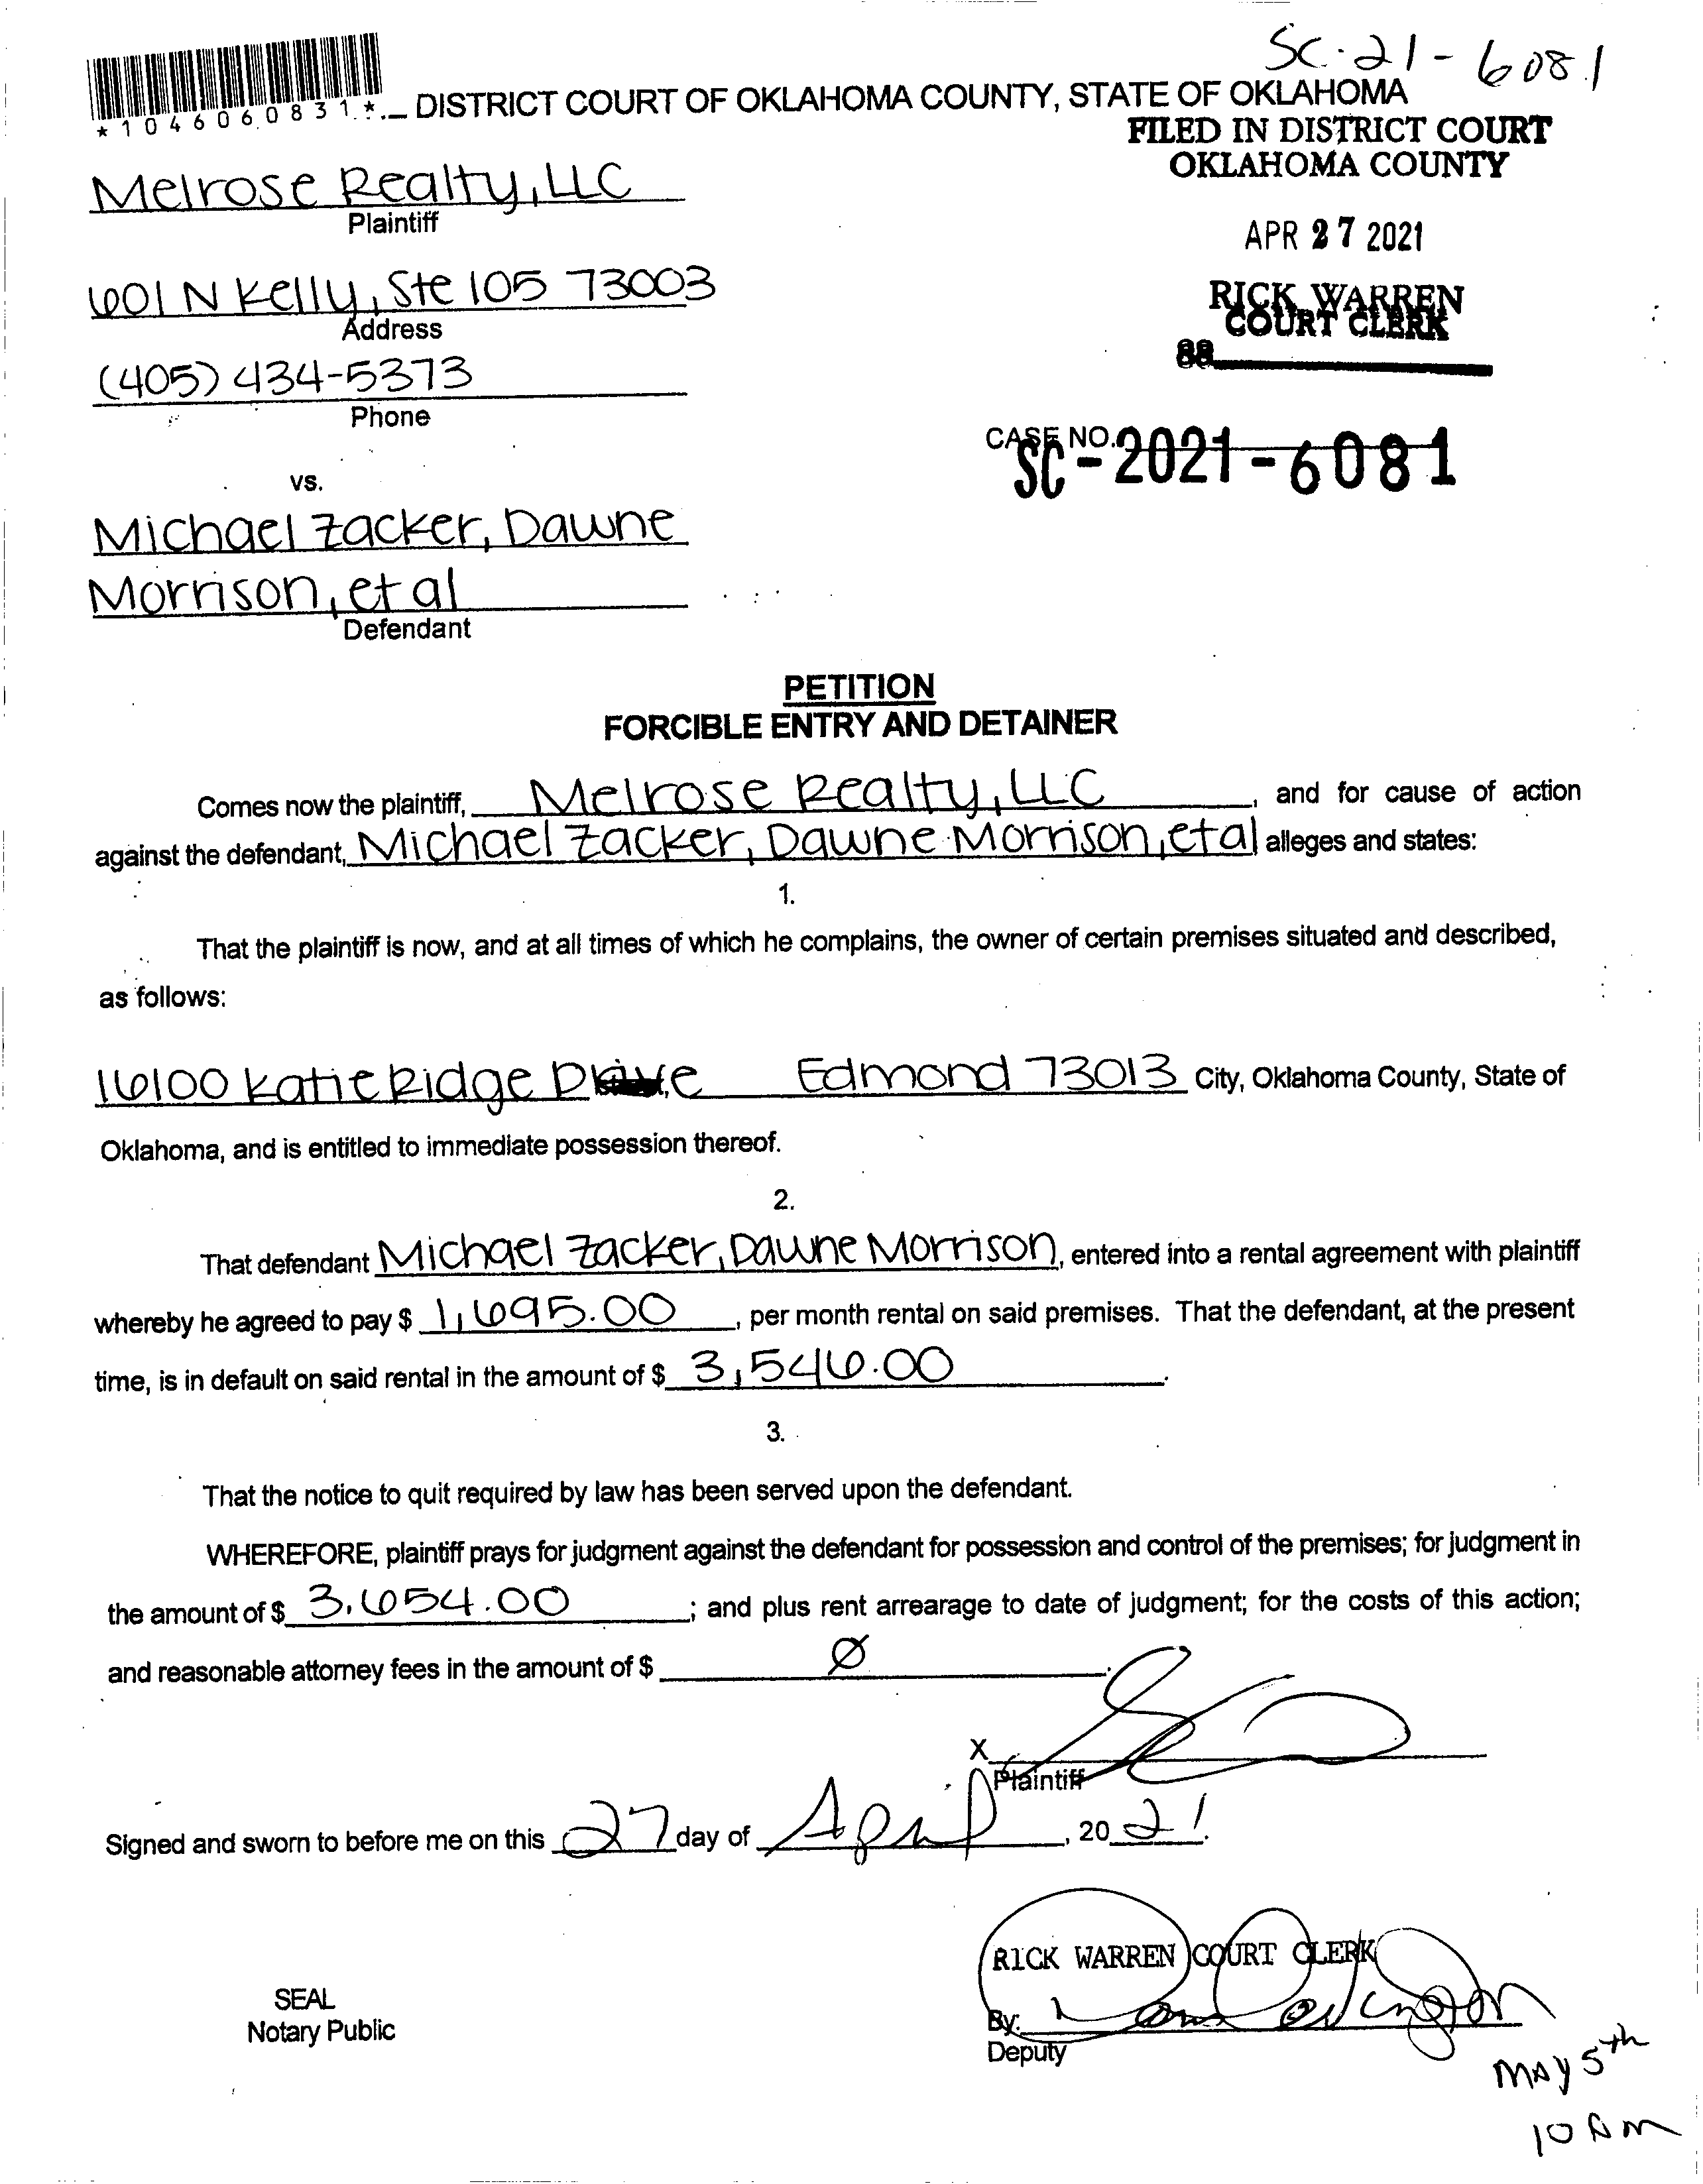 SC-21-6081
*1046060831*
DISTRICT COURT OF OKLAHOMA COUNTY, STATE OF OKLAHOMA
FILED IN DISTRICT COURT
OKLAHOMA COUNTY
Melrose Realty, LLC
Plaintiff
APR 27 2021
601 N Kelly, Ste 105 73003
Address
RICK WARREN
COURT CLERK
88
(405) 434-5373
Phone
CASE NO.
SC-2021-6081
vs.
Michael Zacker, Dawne
Morrison, et al
Defendant
PETITION
FORCIBLE ENTRY AND DETAINER
Comes now the plaintiff, Melrose Realty, LLC, and for cause of action
against the defendant, Michael Zacker, Dawne Morrison, et al alleges and states:
1.
That the plaintiff is now, and at all times of which he complains, the owner of certain premises situated and described,
as follows:
16100 Katie Ridge Drive Edmond 73013 City, Oklahoma County, State of
Oklahoma, and is entitled to immediate possession thereof.
2.
That defendant Michael Zacker, Dawne Morrison, entered into a rental agreement with plaintiff
whereby he agreed to pay $ 1,695.00, per month rental on said premises. That the defendant, at the present
time, is in default on said rental in the amount of $ 3,546.00.
3.
That the notice to quit required by law has been served upon the defendant.
WHEREFORE, plaintiff prays for judgment against the defendant for possession and control of the premises; for judgment in
the amount of $ 3,654.00; and plus rent arrearage to date of judgment; for the costs of this action;
and reasonable attorney fees in the amount of $ Ø.
X
Plaintiff
Signed and sworn to before me on this 27 day of April, 2021.
RICK WARREN COURT CLERK
SEAL
Notary Public
By:
Deputy
MAY 5th
10 AM